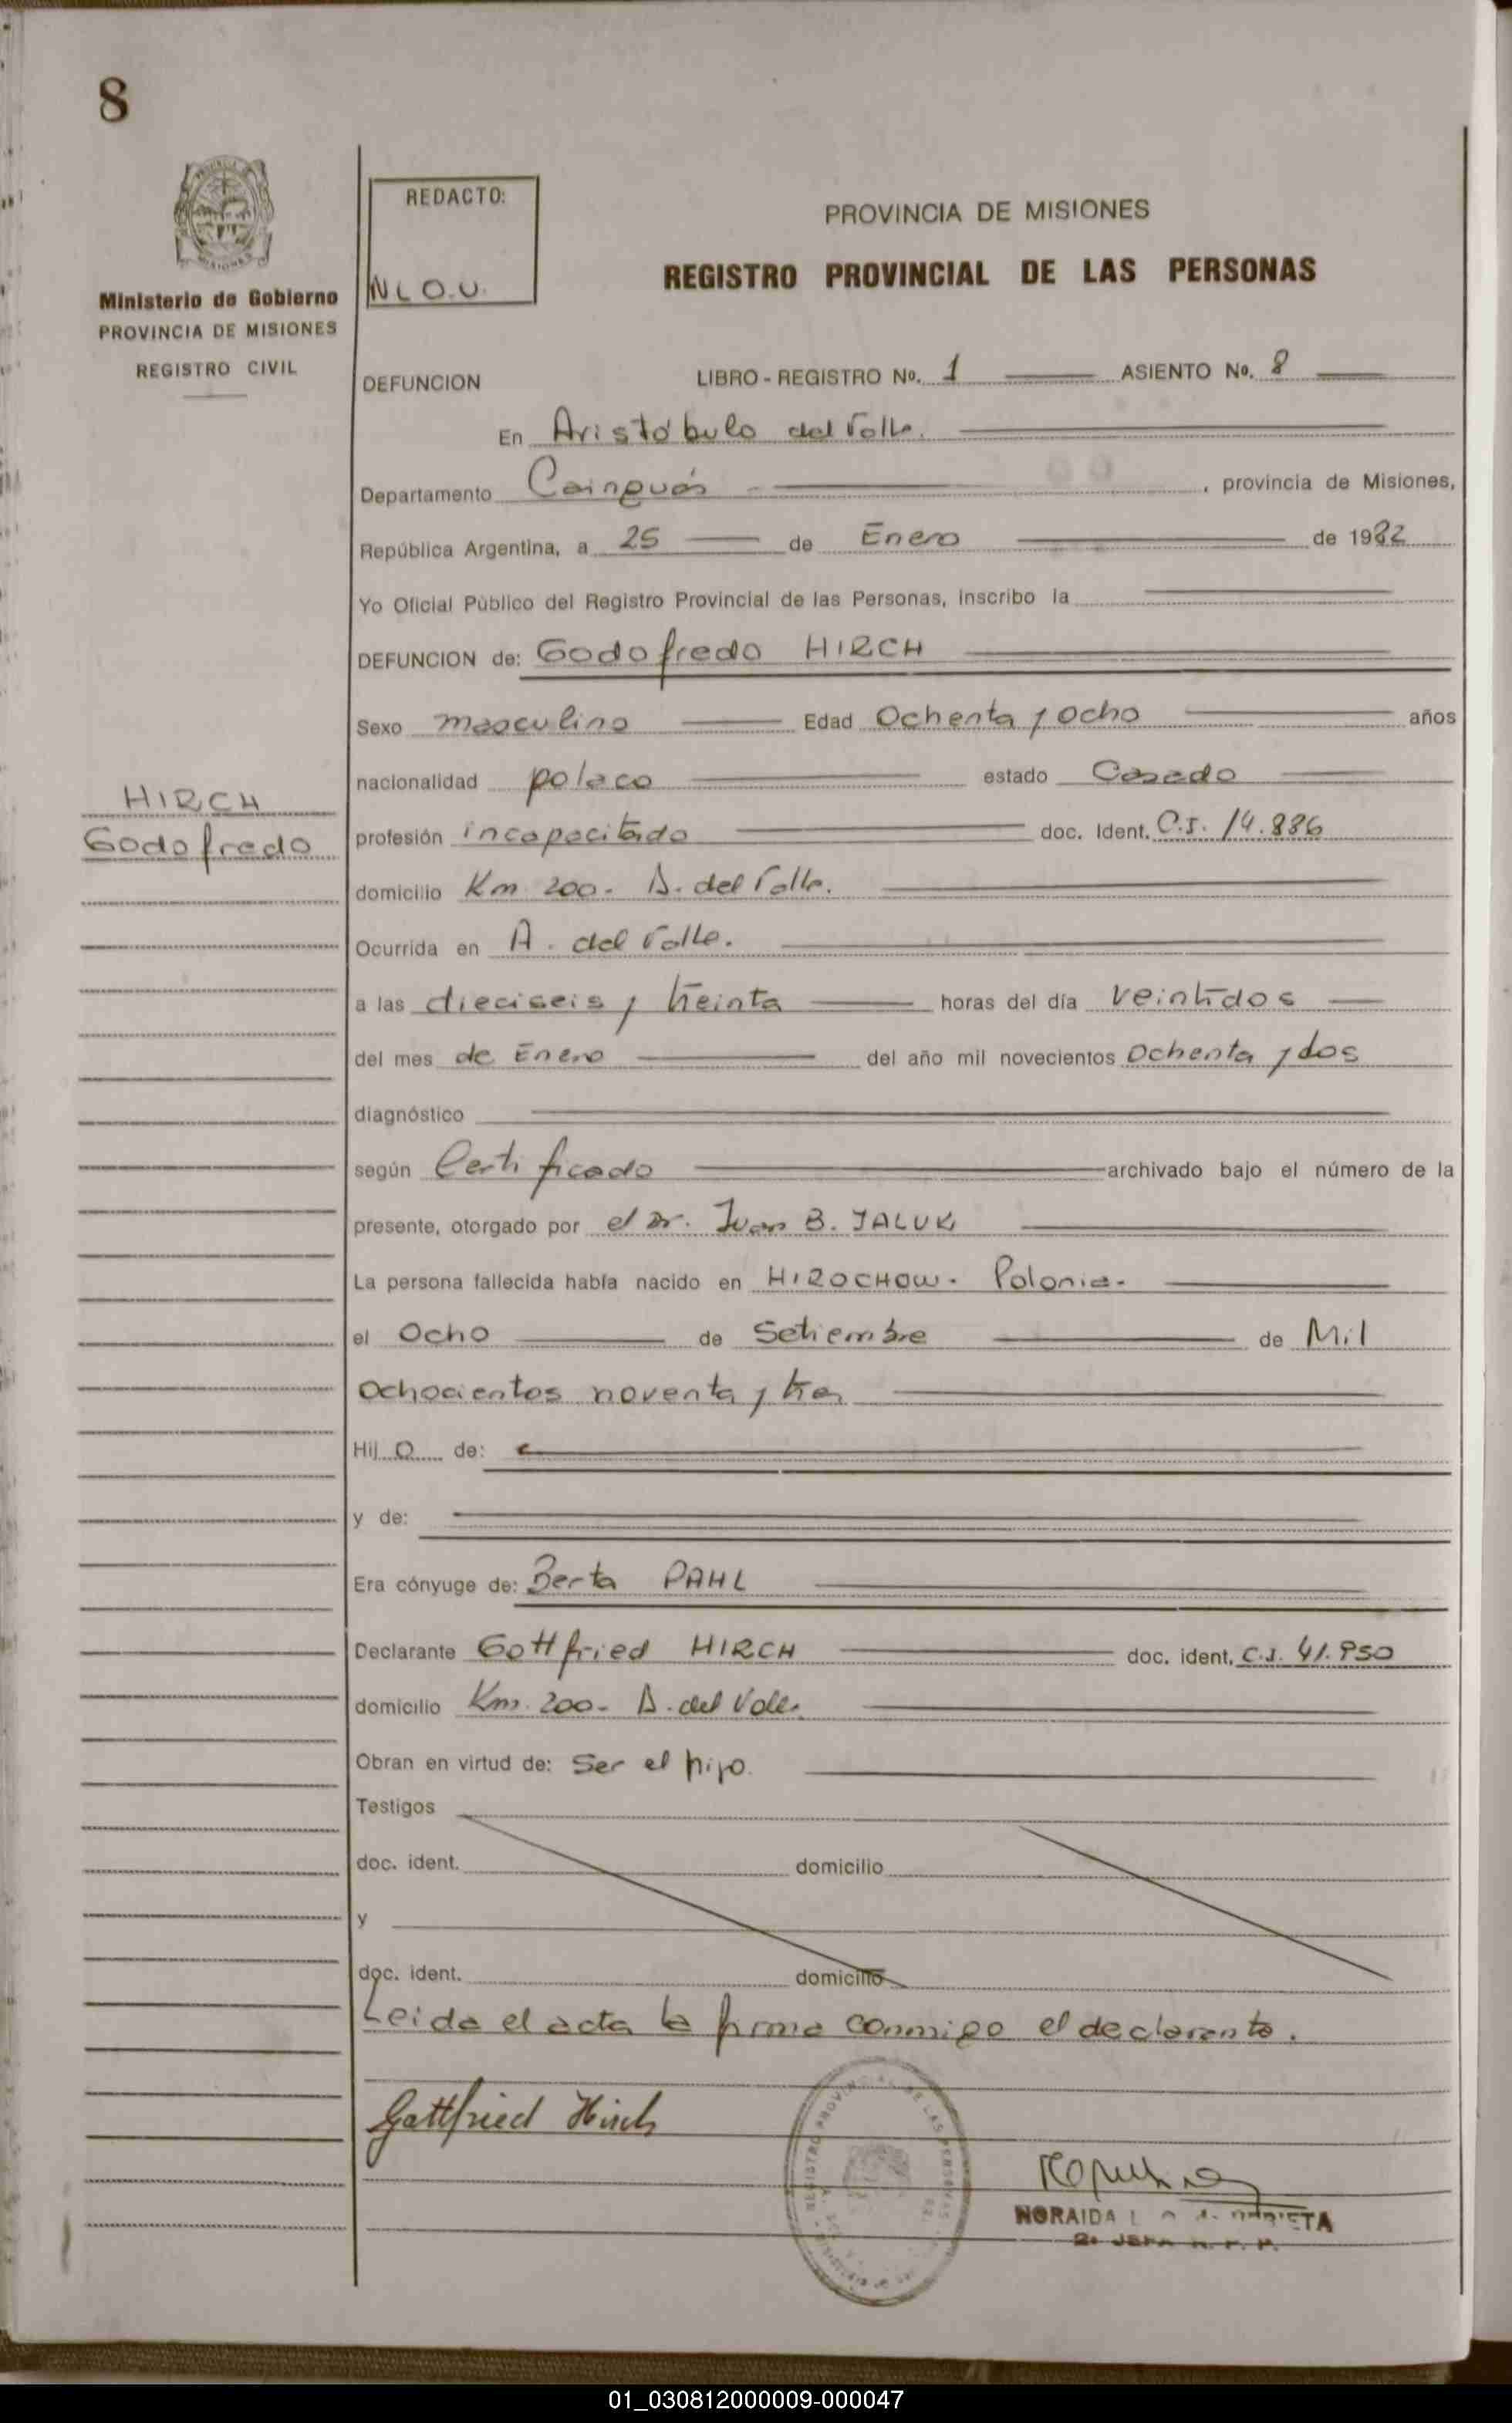 8
REDACTO:
N L O.U.
Ministerio de Gobierno
PROVINCIA DE MISIONES
REGISTRO CIVIL
PROVINCIA DE MISIONES
REGISTRO PROVINCIAL DE LAS PERSONAS
DEFUNCION LIBRO - REGISTRO No. 1 ASIENTO No. 8
En Aristóbulo del Valle.
Departamento Cainguás , provincia de Misiones,
República Argentina, a 25 de Enero de 1982
Yo Oficial Público del Registro Provincial de las Personas, inscribo la
DEFUNCION de: Godofredo HIRCH
Sexo masculino Edad Ochenta y ocho años
nacionalidad polaco estado Casado
HIRCH
Godofredo
profesión incapacitado doc. Ident. C.I. 14.886
domicilio Km 200. A. del Valle.
Ocurrida en A. del Valle.
a las dieciseis y treinta horas del día veintidos
del mes de Enero del año mil novecientos Ochenta y dos
diagnóstico
según Certificado archivado bajo el número de la
presente, otorgado por el Dr. Juan B. JALUK
La persona fallecida había nacido en HIROCHOW. Polonia.
el Ocho de Setiembre de Mil
ochocientos noventa y tres
Hij o de:
y de:
Era cónyuge de: Berta PAHL
Declarante Gottfried HIRCH doc. ident. C.I. 41.950
domicilio Km. 200. A. del Valle.
Obran en virtud de: Ser el hijo.
Testigos
doc. ident. domicilio
y
doc. ident. domicilio
Leida el acta la firma conmigo el declarante.
Gottfried Hirch
REGISTRO PROVINCIAL DE LAS PERSONAS
NORAIDA L
01_030812000009-000047